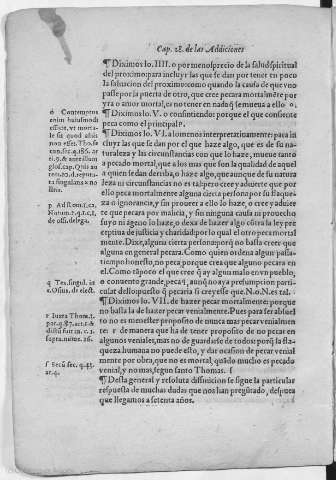 Cap. 28. de las Addiciones
¶ Diximos lo. IIII. o por menosprecio de la salud spiritual
del proximo: para incluyr las que se dan por tener en poco
la saluacion del proximo: como quando la causa de que vno
passe por la puerta de otro, que cree pecara mortalmēte por
yra o amor mortal, es no tener en nada q̃ se mueua a ello o:
¶ Diximos lo. V. o consintiendo: porque el que consiente
peca como el principal P.
¶ Diximos lo. VI. a lo menos interpretatiuamente: para in
cluyr las que se dan por el que haze algo, que es de su na-
turaleza y las circunstancias con que lo haze, mueue tanto
a pecado mortal, que a los mas que son la qualidad de aquel
a quien se dan derriba, o haze algo, que aunque de su natura
leza ni circunstancias no es tal, pero cree y aduierte que por
ello peca mortalmente alguna cierta persona por su flaque-
za o ignorancia, y sin prouero a ello lo haze, o cree y aduier
te que pecara por malicia, y sin ninguna causa ni prouecho
suyo ni ageno lo haze, o dexa de hazer algo si otra la ley pre
ceptiua de justicia y charidad por lo qual el otro peca mortal
mente. Dixe, alguna cierta persona: porq̃ no basta creer que
alguna en general pecara. Como quien ordena algun passa-
tiempo honesto, no peca porque crea que alguno pecara en
el. Como tāpoco el que cree q̃ ay algun malo en vn pueblo,
o conuento grande, peca q, aunq̃ no aya presumpcion parti-
cular de illo puesto q̃ pecaria si creyesse que. N. o. N. es tal.
¶ Diximos lo. VII. de hazer pecar mortalmente: porque
no basta la de hazer pecar venialmente. Pues para ser absuel
to no es menester proposito de nunca mas pecar venialmen
te: r de manera que ha de tener proposito de no pecar en
algunos veniales, mas no de guardarse de todos: porq̃ la fla-
queza humana no puede esso, y dar ocasion de pecar venial
mente por obra, que no es mortal, quãdo mucho es pecado
venial, y no mas, segun santo Thomas. ſ
¶ Desta general y resoluta diffinicion se sigue la particular
respuesta de muchas dudas que nos han pregũtado, despues
que llegamos a setenta años.
o Contemptus
enim huiusmodi
p. Ad ea
q Tex. singul. in
r Iuxta Thom. 1.
ſ Secũ sec. q. 43.
ar. 4.